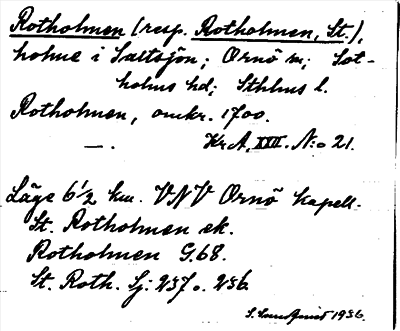 Rotholmen (resp. Rotholmen, St.),
holme i Saltsjön; Ornö sn; Sot-
holms hd; Sthlms l.
Rotholmen, omkr. 1700.
—„— . Kr A, XXII. N:o 21.
Läge 6½ km. VNV Ornö kapell.
St. Rotholmen ek.
Rotholmen G.68.
St. Roth. Sj: 237 o. 236.
1936.